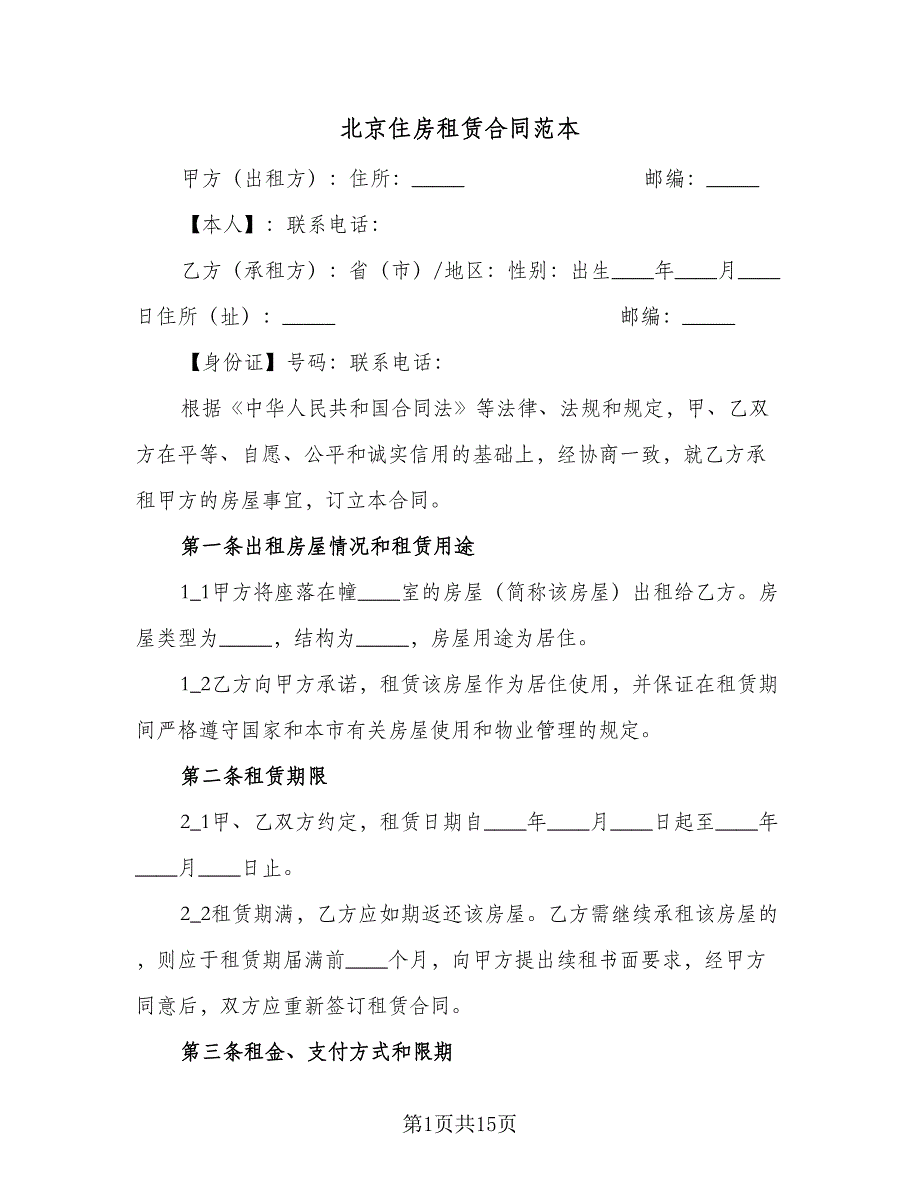 北京住房租赁合同范本
甲方（出租方）：住所：_____ 邮编：_____
【本人】：联系电话：
乙方（承租方）：省（市）/地区：性别：出生____年____月____
日住所（址）：_____ 邮编：_____
【身份证】号码：联系电话：
根据《中华人民共和国合同法》等法律、法规和规定，甲、乙双
方在平等、自愿、公平和诚实信用的基础上，经协商一致，就乙方承
租甲方的房屋事宜，订立本合同。
第一条出租房屋情况和租赁用途
1_1甲方将座落在幢____室的房屋（简称该房屋）出租给乙方。房
屋类型为_____，结构为_____，房屋用途为居住。
1_2乙方向甲方承诺，租赁该房屋作为居住使用，并保证在租赁期
间严格遵守国家和本市有关房屋使用和物业管理的规定。
第二条租赁期限
2_1甲、乙双方约定，租赁日期自____年____月____日起至____年
____月____日止。
2_2租赁期满，乙方应如期返还该房屋。乙方需继续承租该房屋的
，则应于租赁期届满前____个月，向甲方提出续租书面要求，经甲方
同意后，双方应重新签订租赁合同。
第三条租金、支付方式和限期
第1页共15页